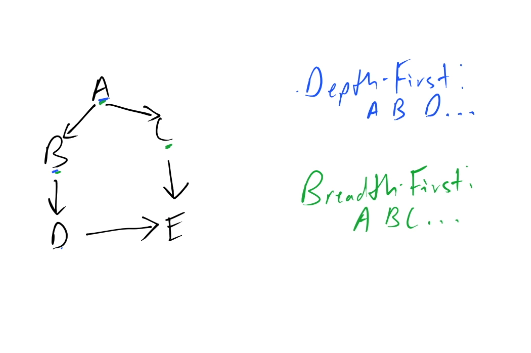 A
B
C
D
E
Depth-First:
A B D...
Breadth-First:
A BC...